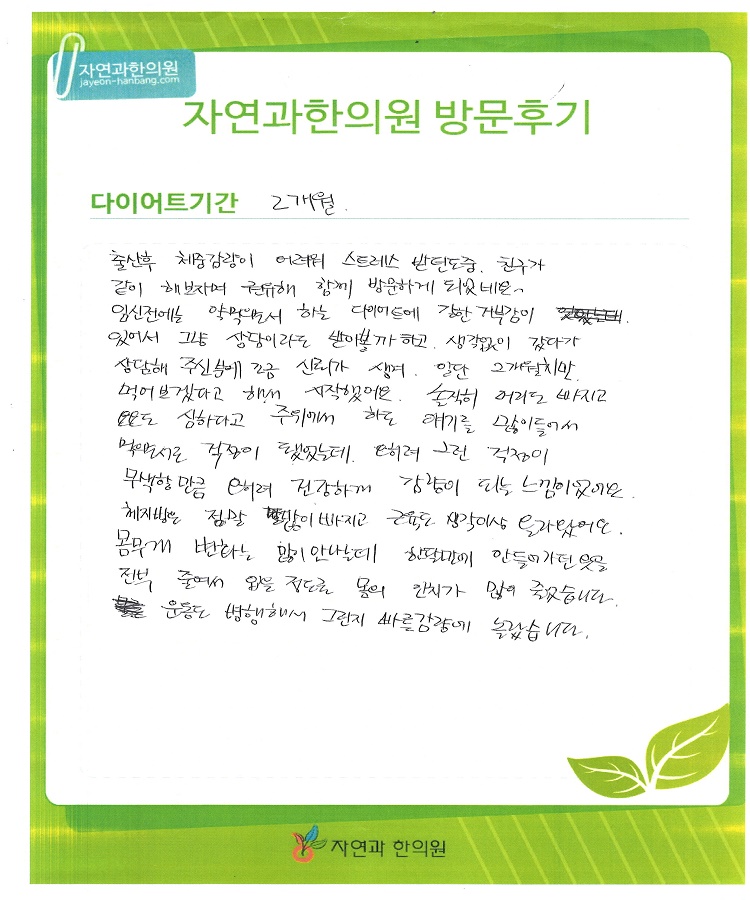 자연과한의원
jayeon-hanbang.com
자연과한의원 방문후기
다이어트기간 2개월.
출산후 체중감량이 어려워 스트레스 받던도중. 친구가
같이 해보자며 권유해 함께 방문하게 되었네요~
임신전에는 약먹으면서 하는 다이어트에 강한 거부감이
있어서 그냥 상담이라도 받아볼까 하고. 생각없이 갔다가
상담해 주신분에 조금 신뢰가 생겨. 일단 2개월치만
먹어보겠다고 해서 시작했어요. 솔직히 머리도 빠지고
요요도 심하다고 주위에서 하도 얘기를 많이들어서
먹으면서도 걱정이 됐었는데. 오히려 그런 걱정이
무색할만큼 오히려 건강하게 감량이 되는 느낌이었어요.
체지방은 정말 많이 빠지고 근육도 생각이상 올라왔어요.
몸무게 변화는 많이 안나는데 한달만에 안들어가던 옷을
전부 줄여서 입을 정도로 몸의 인치가 많이 줄었습니다.
운동도 병행해서 그런지 빠른감량에 놀랐습니다.
자연과 한의원